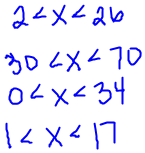 2 < x < 26
30 < x < 70
0 < x < 34
1 < x < 17